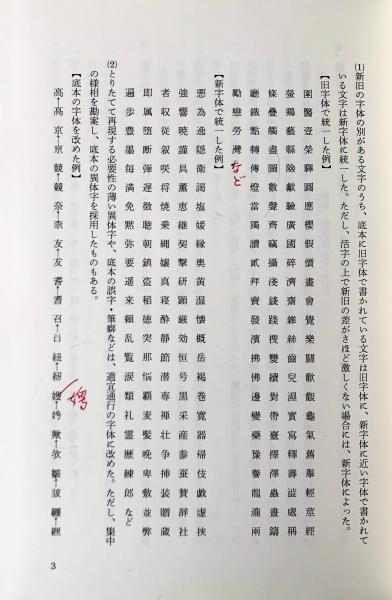 (1) 新旧の字体の別がある文字のうち、底本に旧字体で書かれている文字は旧字体に、新字体に近い字体で書かれて
いる文字は新字体に統一した。ただし、活字の上で新旧の差がさほど激しくない場合には、新字体によった。
【旧字体で統一した例】
圍醫壹榮驛圓應櫻假價畫會覺樂關歡觀龜氣舊擧輕莖經
螢鷄藝縣險獻驗廣國碎濟齋雜絲齒兒濕實寫釋壽澁處稱
條疊觸盡圖數聲齊竊攝淺錢踐搜雙續對帶臺擇澤蟲晝鑄
廳鐵點轉傳燈當獨讀貳拜賣發濱拂佛邊變藥豫譽龍瀧兩
勵戀勞灣など
【新字体で統一した例】
悪為逸隠衛謁塩媛縁奥黄温懐概岳褐巻寛器帰伎戯虚挟
強響暁謹具薫恵継契撃研顕厳効恒号黒采産参蚕賛辞社
者収従叙咲将焼乗縄嬢真寝酔静節潜専禅壮争挿装贈蔵
即属堕断弾遅徴聴朝鎮盗稲徳突那悩覇麦髪晩卑敷並弊
遍歩豊墨毎満免黙弥要遥来頼乱覧涙類礼霊歴練郎など
(2) とりたてて再現する必要性の薄い異体字や、底本の誤字・筆癖などは、適宜通行の字体に改めた。ただし、集中
の様相を勘案し、底本の異体字を採用したものもある。
【底本の字体を改めた例】
3